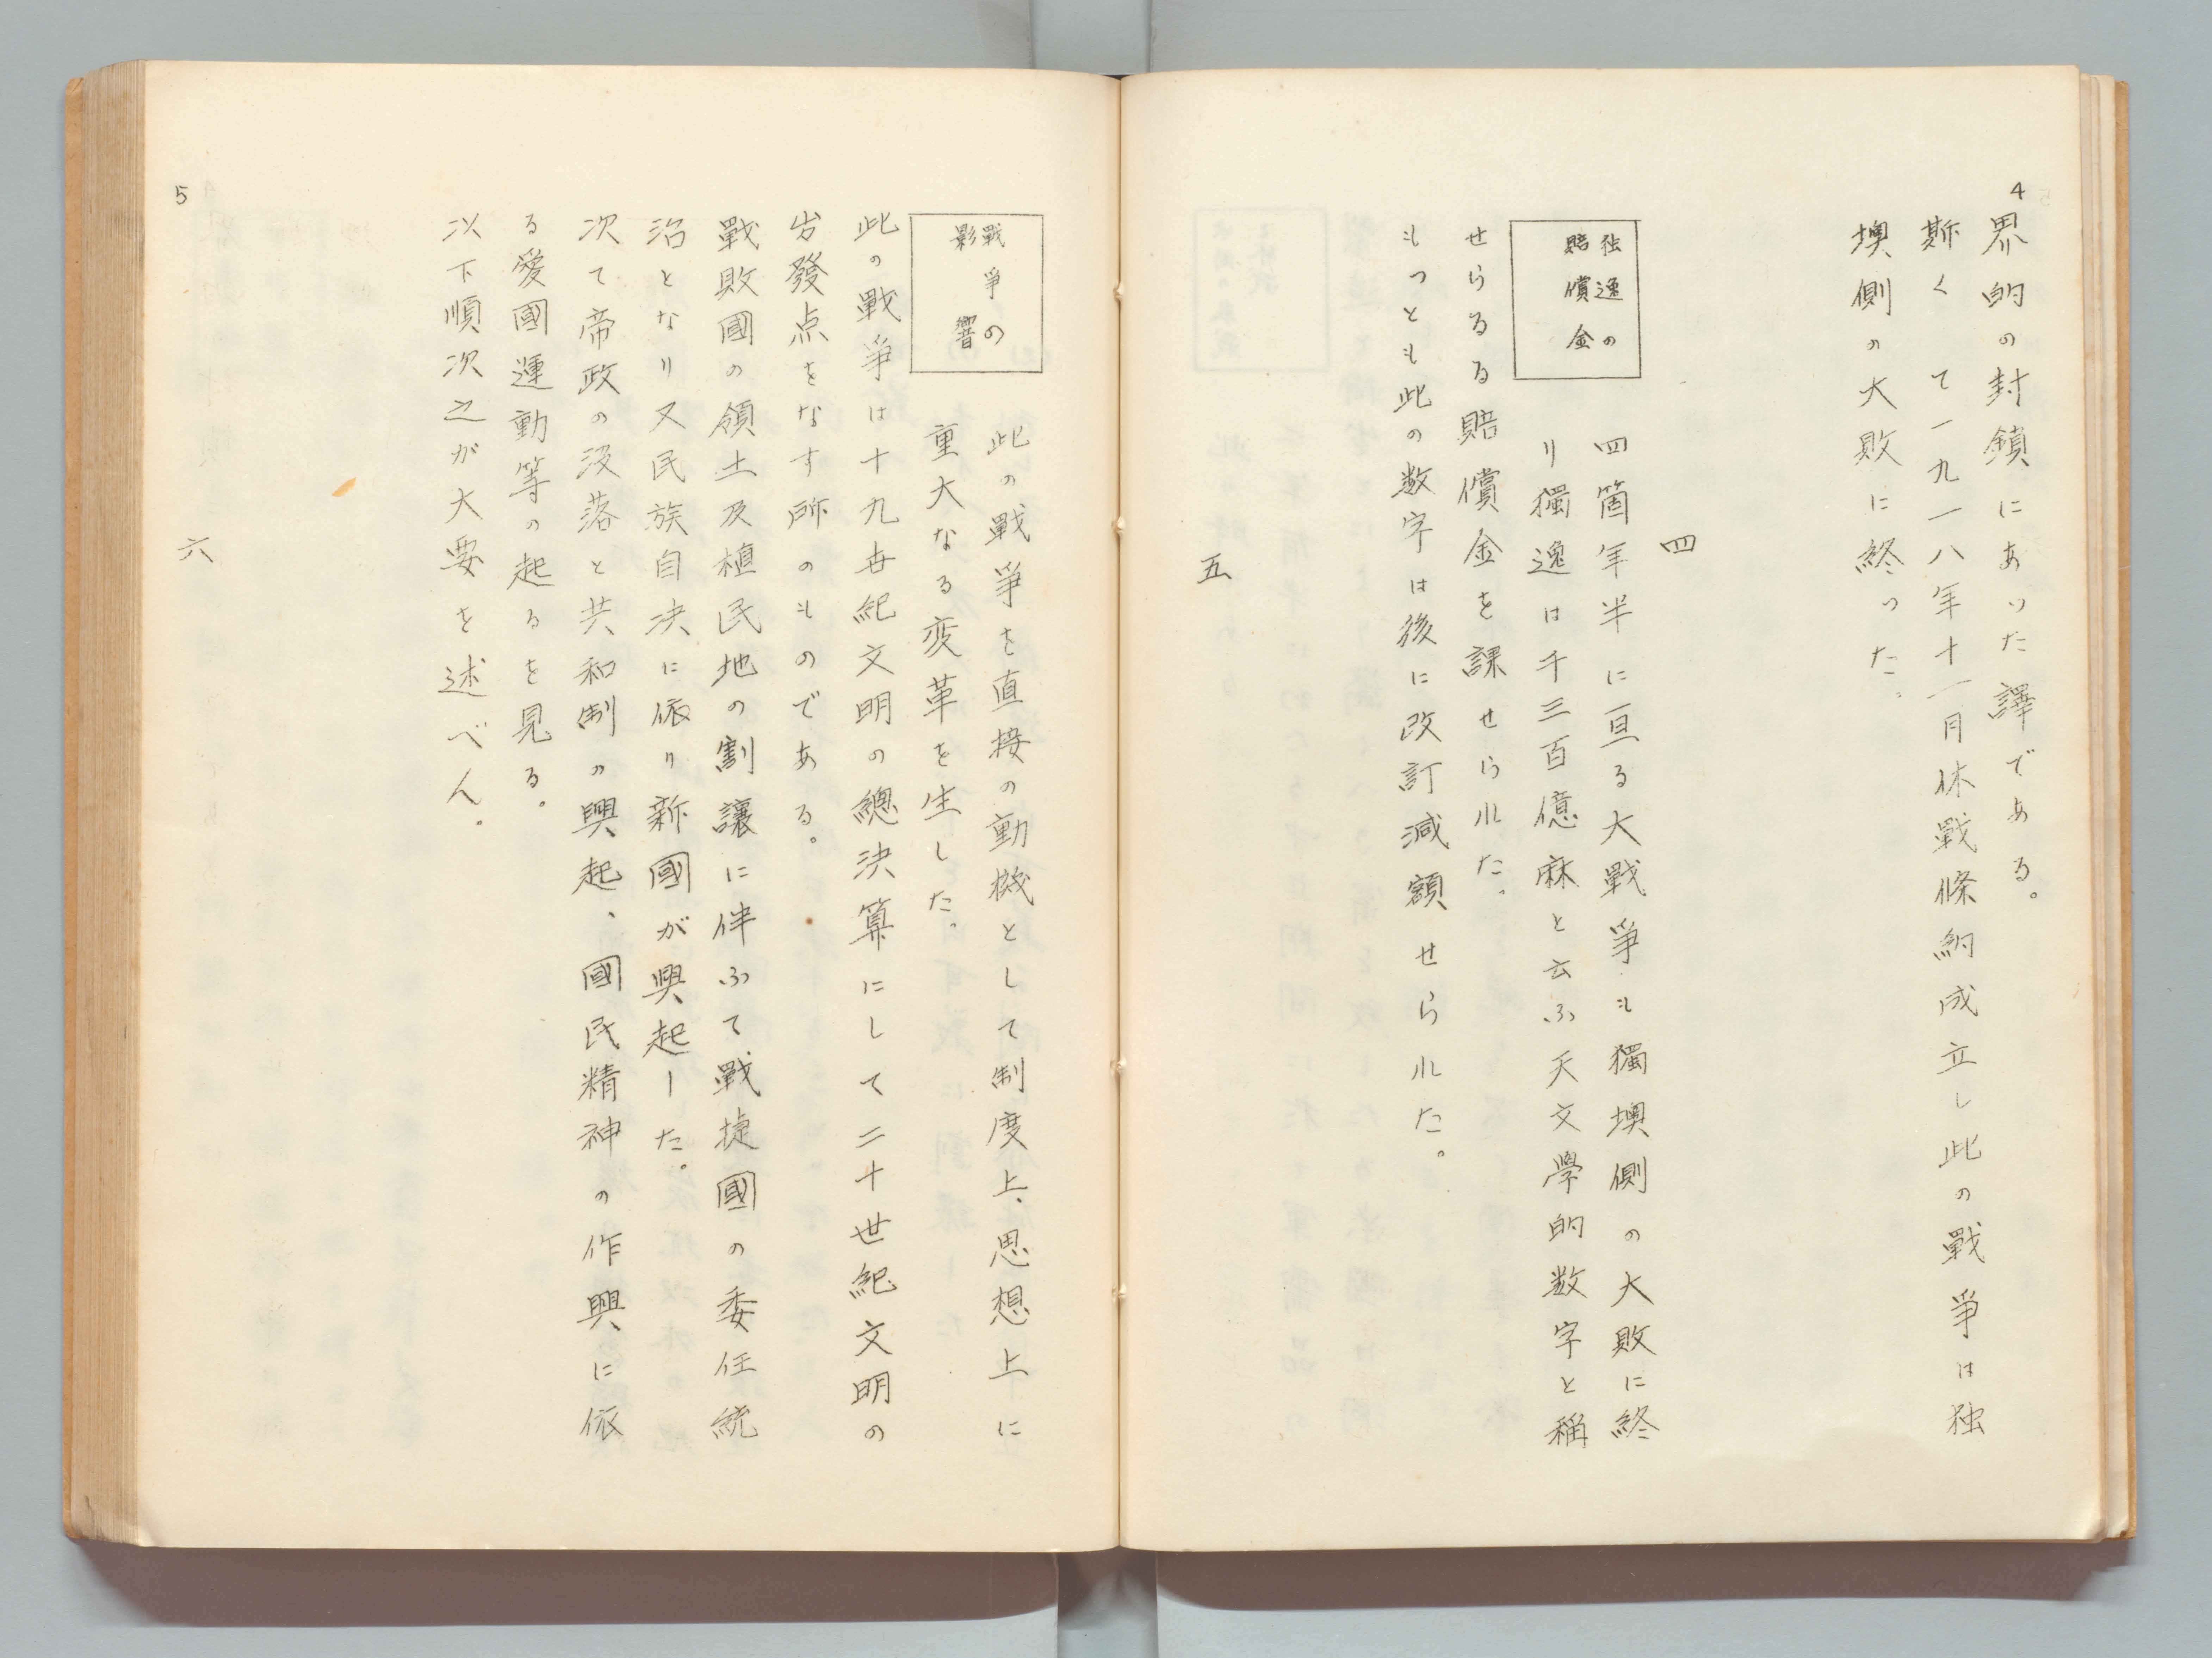 4
界的の封鎖にあつた譯である。
斯くて一九一八年十一月休戰條約成立し此の戰爭は独
墺側の大敗に終つた。
四
独逸の
賠償金
四箇年半に亘る大戰爭も獨墺側の大敗に終
り獨逸は千三百億麻と云ふ天文學的数字と稱
せらるる賠償金を課せられた。
もつとも此の数字は後に改訂減額せられた。
五
戰爭の
影響
此の戰爭を直接の動機として制度上、思想上に
重大なる変革を生した。
此の戰爭は十九世紀文明の總決算にして二十世紀文明の
出發点をなす所のものである。
戰敗國の領土及植民地の割讓に伴ふて戰捷國の委任統
治となり又民族自决に依り新國が興起した。
次て帝政の没落と共和制の興起、國民精神の作興に依
る愛國運動等の起るを見る。
以下順次之が大要を述べん。
5
六